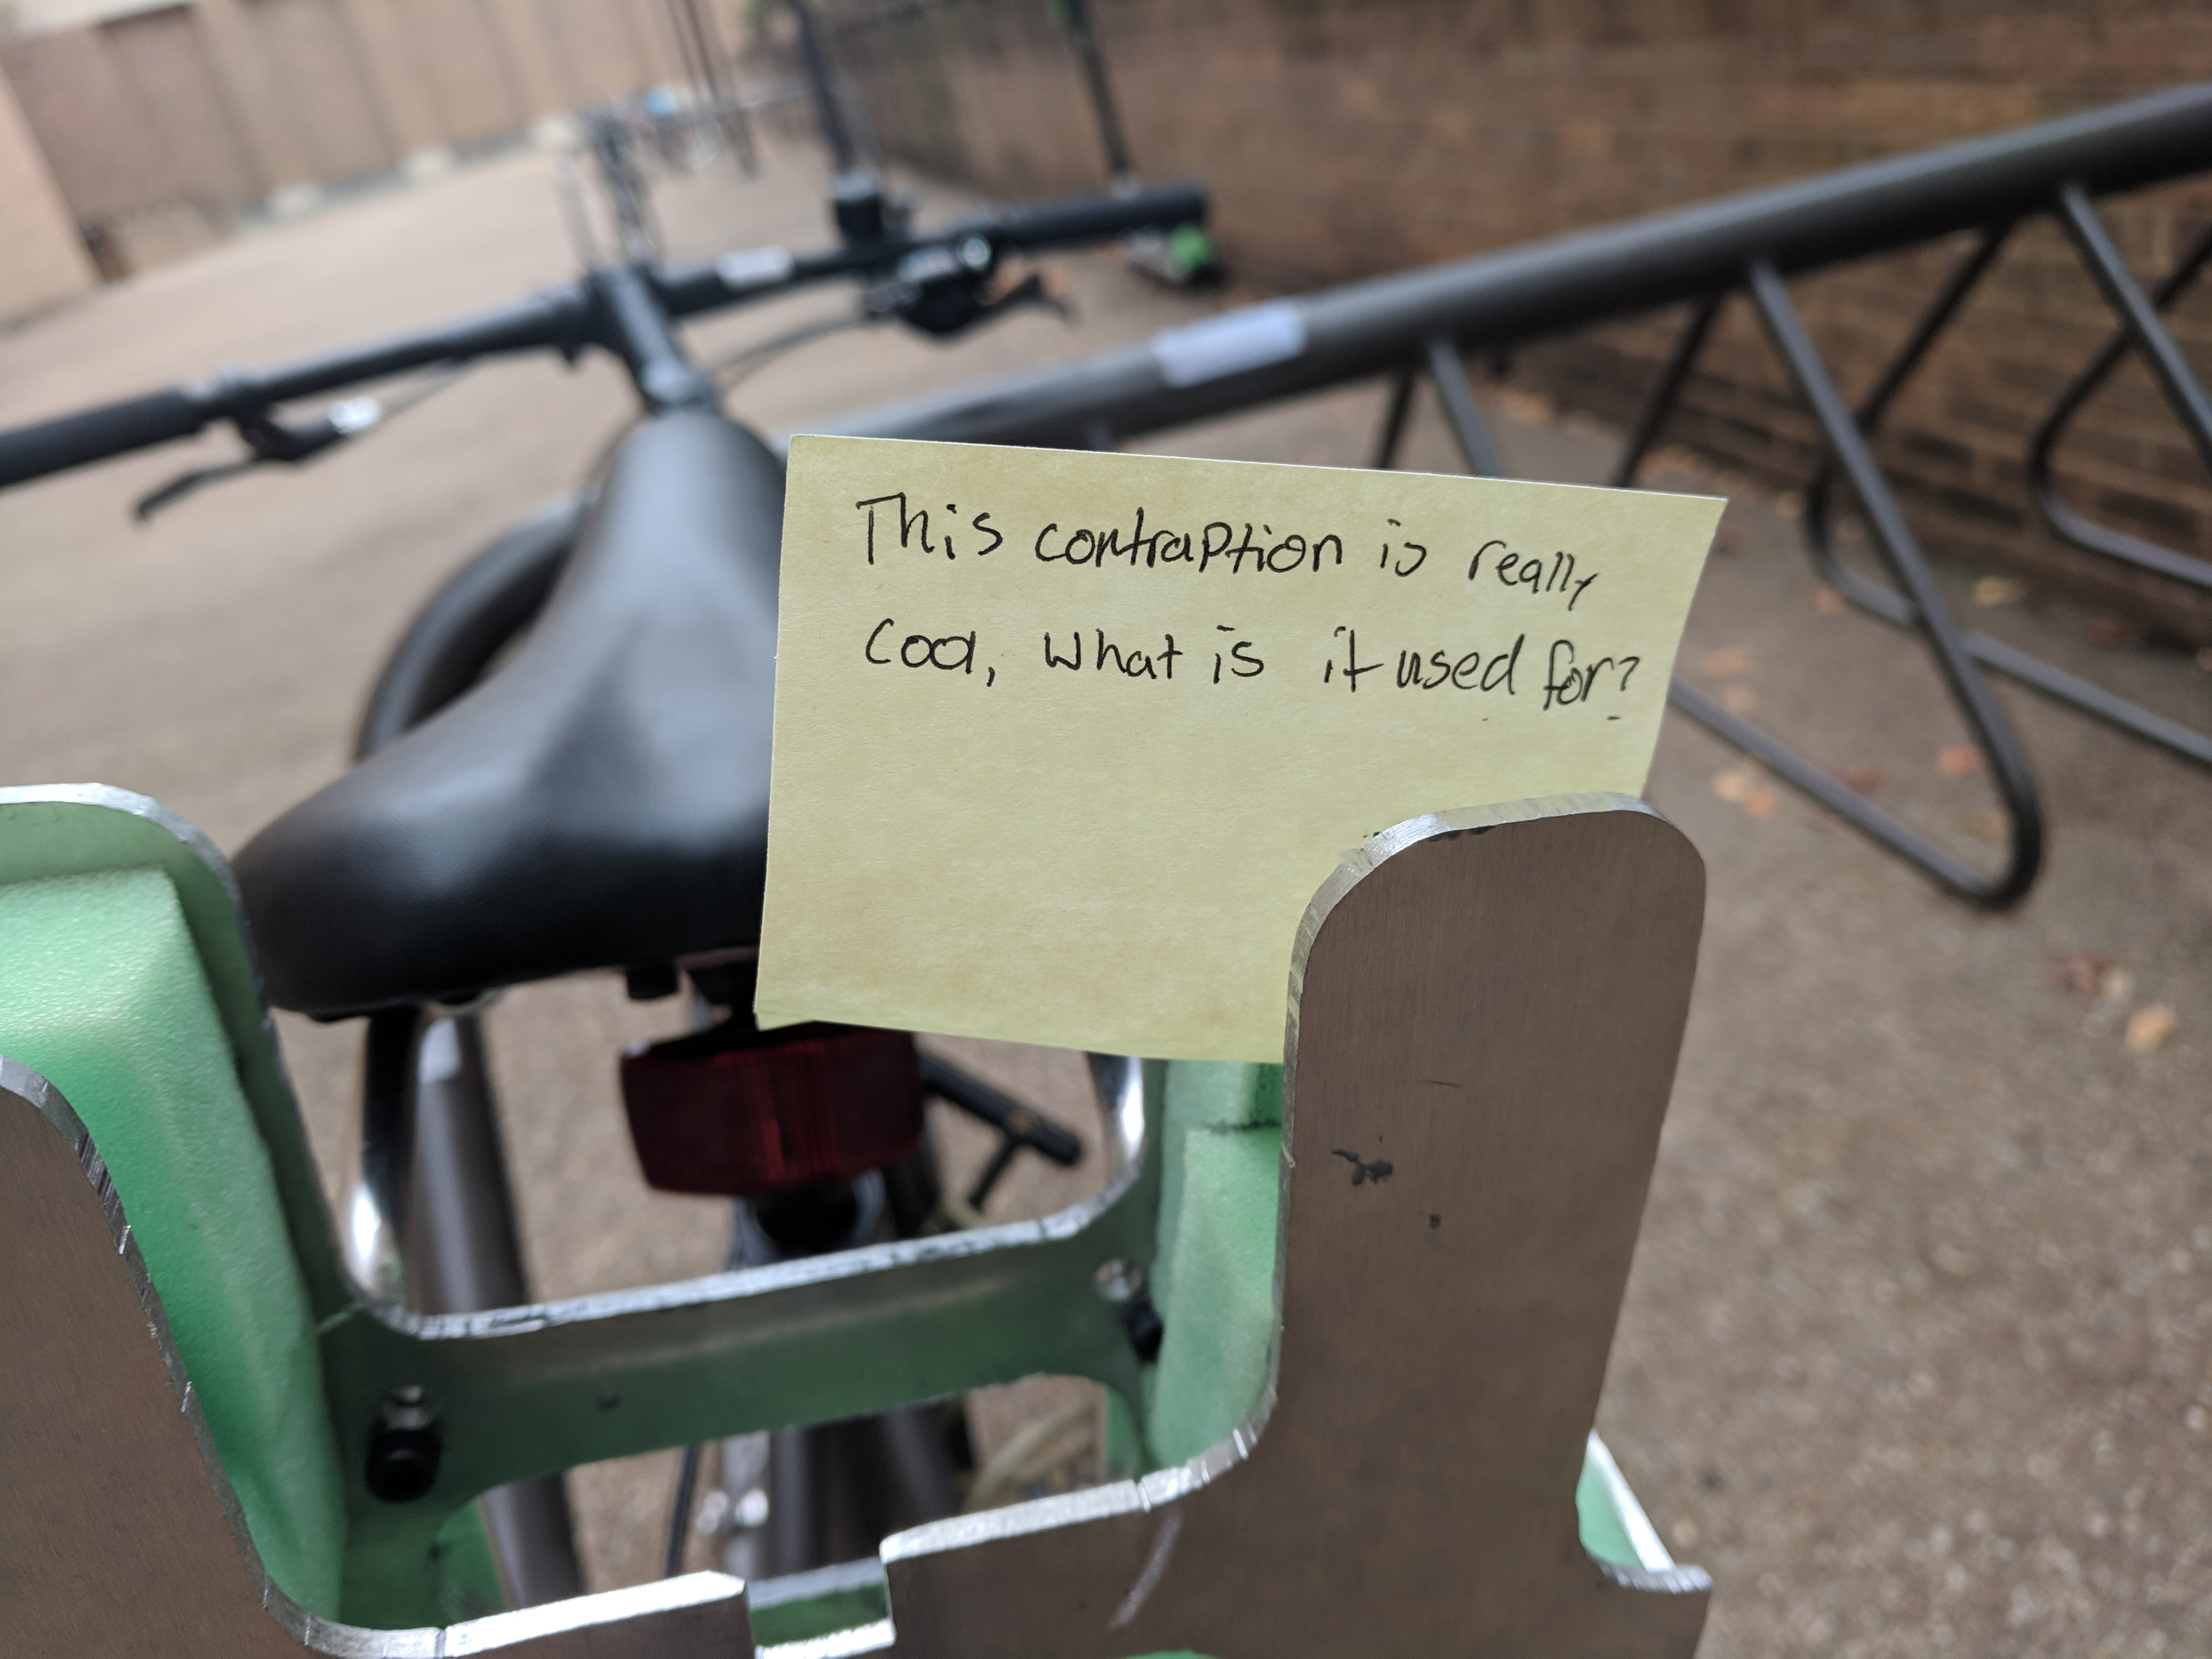 This contraption is really
cool, what is it used for?